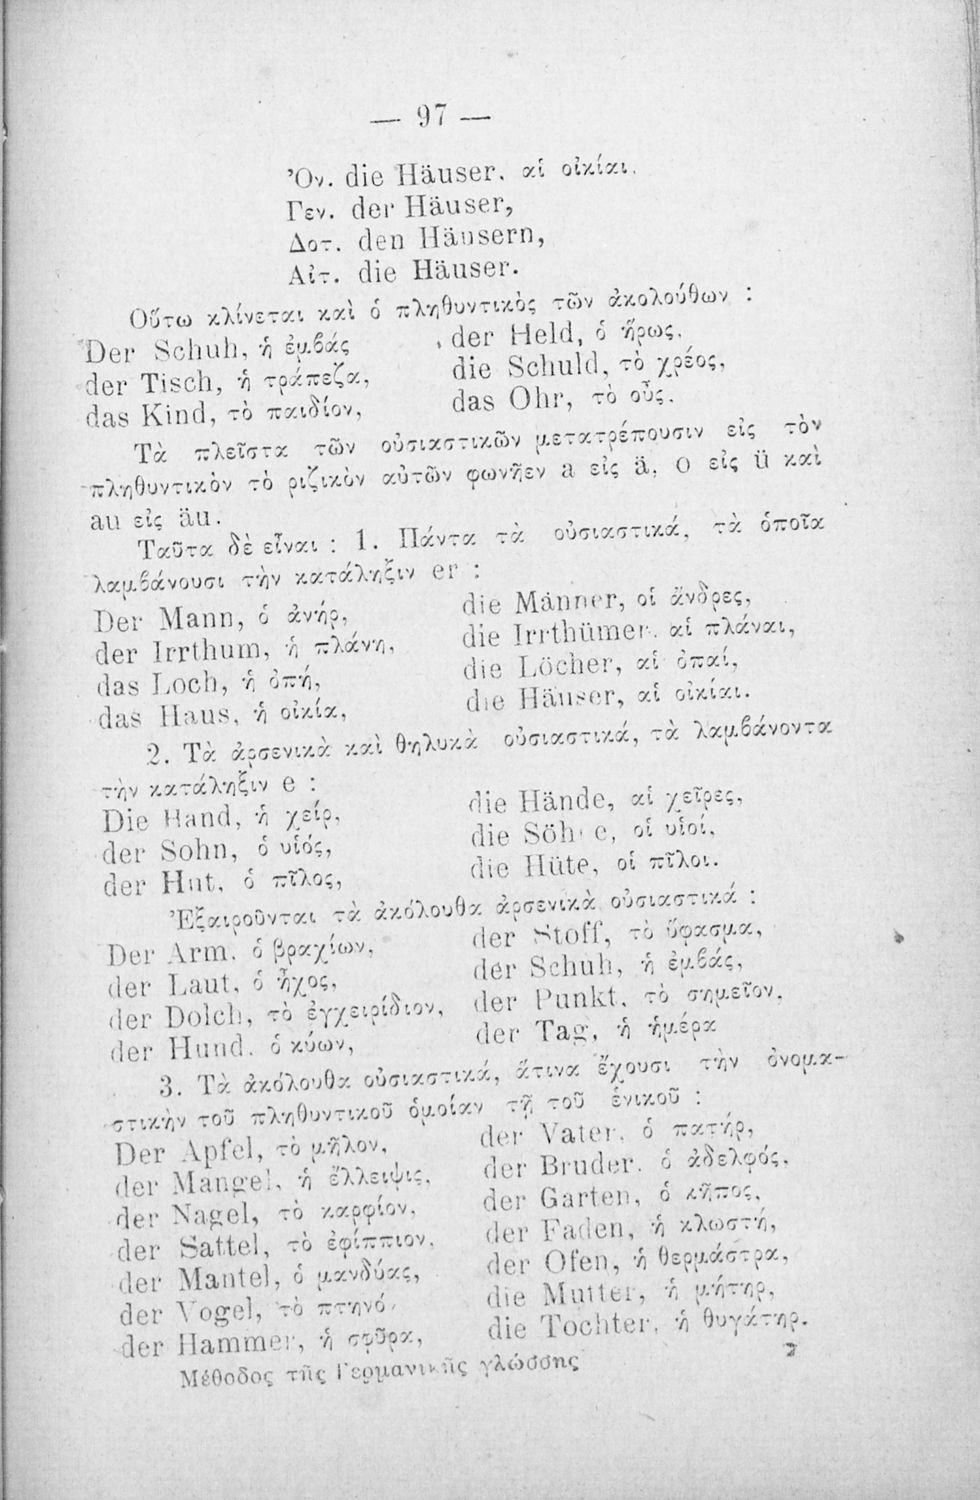 — 97 —
Ὀν. die Häuser, αἱ οἰκίαι,
Γεν. der Häuser,
Δοτ. den Häusern,
Αἰτ. die Häuser.
Οὕτω κλίνεται καὶ ὁ πληθυντικὸς τῶν ἀκολούθων :
Der Schuh, ἡ ἐμβάς der Held, ὁ ἥρως,
der Tisch, ἡ τράπεζα, die Schuld, τὸ χρέος,
das Kind, τὸ παιδίον, das Ohr, τὸ οὖς.
Τὰ πλεῖστα τῶν οὐσιαστικῶν μετατρέπουσιν εἰς τὸν
πληθυντικὸν τὸ ριζικὸν αὐτῶν φωνῆεν a εἰς ä, o εἰς ü καὶ
au εἰς äu.
Ταῦτα δὲ εἶναι : 1. Πάντα τὰ οὐσιαστικά, τὰ ὁποῖα
λαμβάνουσι τὴν κατάληξιν er :
Der Mann, ὁ ἀνήρ, die Männer, οἱ ἄνδρες,
der Irrthum, ἡ πλάνη, die Irrthümer, αἱ πλάναι,
das Loch, ἡ ὀπή, die Löcher, αἱ ὀπαί,
das Haus, ἡ οἰκία, die Häuser, αἱ οἰκίαι.
2. Τὰ ἀρσενικὰ καὶ θηλυκὰ οὐσιαστικά, τὰ λαμβάνοντα
τὴν κατάληξιν e :
Die Hand, ἡ χείρ, die Hände, αἱ χεῖρες,
der Sohn, ὁ υἱός, die Söhne, οἱ υἱοί,
der Hut, ὁ πῖλος, die Hüte, οἱ πῖλοι.
Ἐξαιροῦνται τὰ ἀκόλουθα ἀρσενικὰ οὐσιαστικά :
Der Arm, ὁ βραχίων, der Stoff, τὸ ὕφασμα,
der Laut, ὁ ἦχος, der Schuh, ἡ ἐμβάς,
der Dolch, τὸ ἐγχειρίδιον, der Punkt, τὸ σημεῖον,
der Hund, ὁ κύων, der Tag, ἡ ἡμέρα
3. Τὰ ἀκόλουθα οὐσιαστικά, ἅτινα ἔχουσι τὴν ὀνομα-
στικὴν τοῦ πληθυντικοῦ ὁμοίαν τῇ τοῦ ἑνικοῦ :
Der Apfel, τὸ μῆλον, der Vater, ὁ πατήρ,
der Mangel, ἡ ἔλλειψις, der Bruder, ὁ ἀδελφός,
der Nagel, τὸ καρφίον, der Garten, ὁ κῆπος,
der Sattel, τὸ ἐφίππιον, der Faden, ἡ κλωστή,
der Mantel, ὁ μανδύας, der Ofen, ἡ θερμάστρα,
der Vogel, τὸ πτηνό, die Mutter, ἡ μήτηρ,
der Hammer, ἡ σφῦρα, die Tochter, ἡ θυγάτηρ.
Μέθοδος τῆς Γερμανικῆς γλώσσης 7